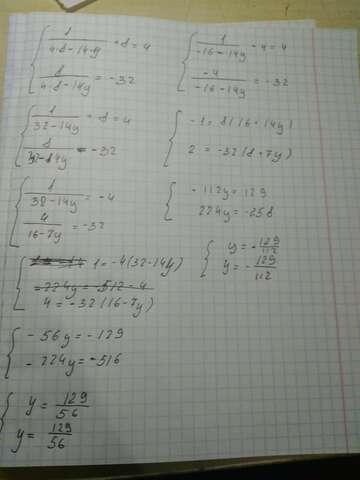 1/(4·8-14·y) + 8 = 4
8/(4·8-14y) = -32
1/(32-14y) + 8 = 4
8/(32-14y) = -32
1/(32-14y) = -4
4/(16-7y) = -32
1 = -4(32-14y)
-224y = -512-4
4 = -32(16-7y)
-56y = -129
-224y = -516
y = 129/56
y = 129/56
1/(-16-14y) - 4 = 4
-4/(-16-14y) = -32
-1 = 8(16+14y)
2 = -32(8+7y)
-112y = 129
224y = -258
y = -129/112
y = -129/112